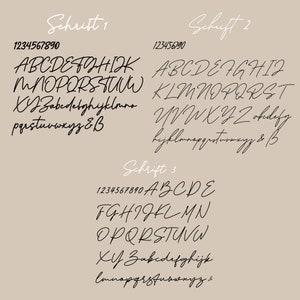 Schrift 1
1234567890
ABCDEFGHIJK
LMNOPQRSTUVW
XYZabcdefghijklmno
pqrstuvwxyz&ß
Schrift 2
1234567890
ABCDEFGHIJ
KLMNOPQRST
UVWXYZabcdefg
hijklmnopqrstuvwxyz&ß
Schrift 3
1234567890ABCDE
FGHIJKLMN
OPQRSTUVW
XYZabcdefghijk
lmnopqrstuvwxyz&